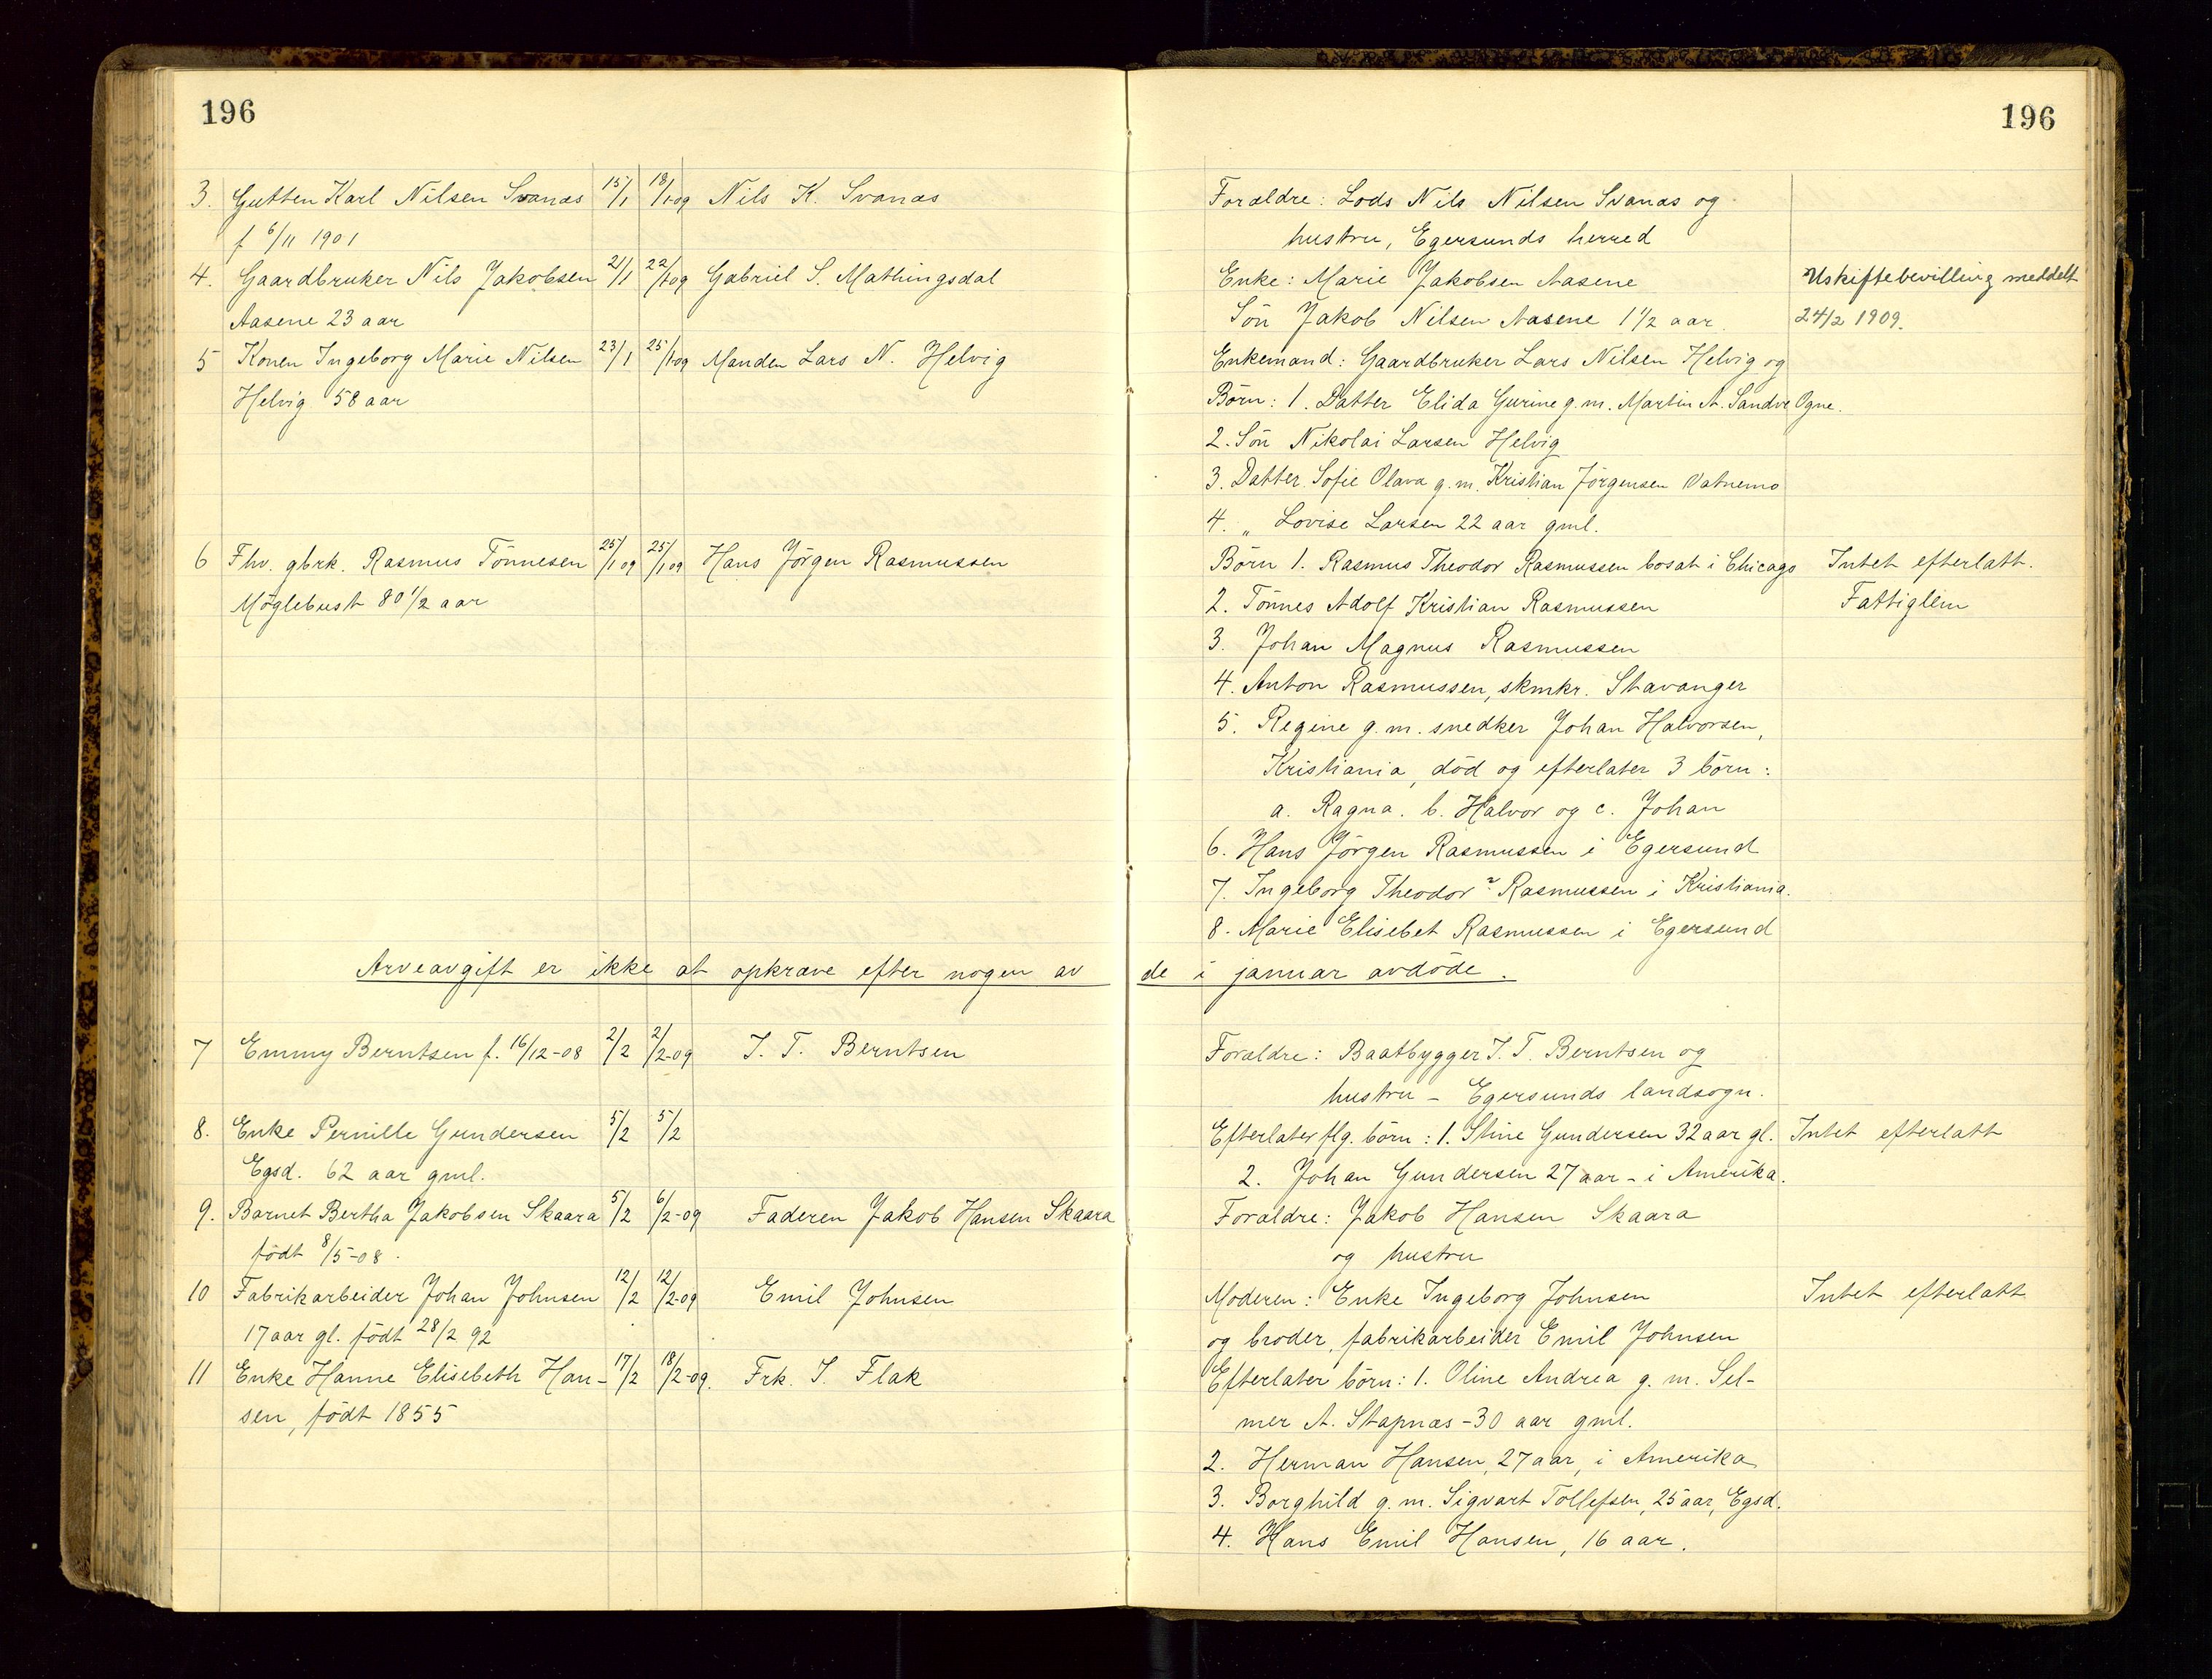 196
3. Gutten Karl Nilsen Svanæs 15/1 18/1-09 Nils K. Svanæs
f 6/11 1901
4. Gaardbruker Nils Jakobsen 21/1 22/1-09 Gabriel S. Mathingsdal
Aasene 23 aar
5 Konen Ingeborg Marie Nilsen 23/1 25/1-09 Manden Lars N. Helvig
Helvig 58 aar
6 Fhv. gbrk. Rasmus Tönnesen 25/1 09 25/1 09 Hans Jörgen Rasmussen
Möglebust 80 1/2 aar
Arveavgift er ikke at opkræve efter nogen av
7 Emmy Berntsen f. 16/12-08 2/2 2/2-09 I. T. Berntsen
8. Enke Pernille Gundersen 5/2 5/2
Egsd. 62 aar gml.
9. Barnet Bertha Jakobsen Skaara 5/2 6/2-09 Faderen Jakob Hansen Skaara
född 8/5-08.
10 Fabrikarbeider Johan Johnsen 12/2 12/2-09 Emil Johnsen
17 aar gl. født 28/2 92
11 Enke Hanne Elisebeth Han- 17/2 18/2-09. Frk. I. Flak
sen, født 1855
196
Forældre: Lods Nils Nilsen Svanæs og
hustru, Egersunds herred
Enke: Marie Jakobsen Aasene Uskiftebevilling meddelt
Sön Jakob Nilsen Aasene 1 1/2 aar. 24/2 1909.
Enkemand: Gaardbruker Lars Nilsen Helvig og
Börn: 1. Datter Elida Gurine g.m. Martin A. Sandve Ogne.
2. Sön Nikolai Larsen Helvig
3. Datter Sofie Olava g.m. Kristian Jörgensen Vatnemo
4. „ Lovise Larsen 22 aar gml.
Börn 1. Rasmus Theodor Rasmussen bosat i Chicago Intet efterlatt.
2. Tönnes Adolf Kristian Rasmussen Fattiglem
3. Johan Magnus Rasmussen
4. Anton Rasmussen, skmkr. Stavanger
5. Regine g.m. snedker Johan Halvorsen,
Kristiania, död og efterlater 3 börn:
a. Ragna. b. Halvor og c. Johan
6. Hans Jörgen Rasmussen i Egersund
7. Ingeborg Theodor ? Rasmussen i Kristiania.
8. Marie Elisebet Rasmussen i Egersund
de i januar avdöde.
Forældre: Baatbygger I. T. Berntsen og
hustru - Egersunds landsogn.
Efterlater flg. börn: 1. Stine Gundersen 32 aar gl. Intet efterlatt
2. Johan Gundersen 27 aar - i Amerika.
Forældre: Jakob Hansen Skaara
og hustru
Moderen: Enke Ingeborg Johnsen Intet efterlatt
og broder, fabrikarbeider Emil Johnsen
Efterlater börn: 1. Oline Andrea g.m. Sel-
mer A. Stapnæs - 30 aar gml.
2. Herman Hansen, 27 aar, i Amerika
3. Borghild g.m. Sigvart Tollefsen, 25 aar, Egsd.
4. Hans Emil Hansen, 16 aar.